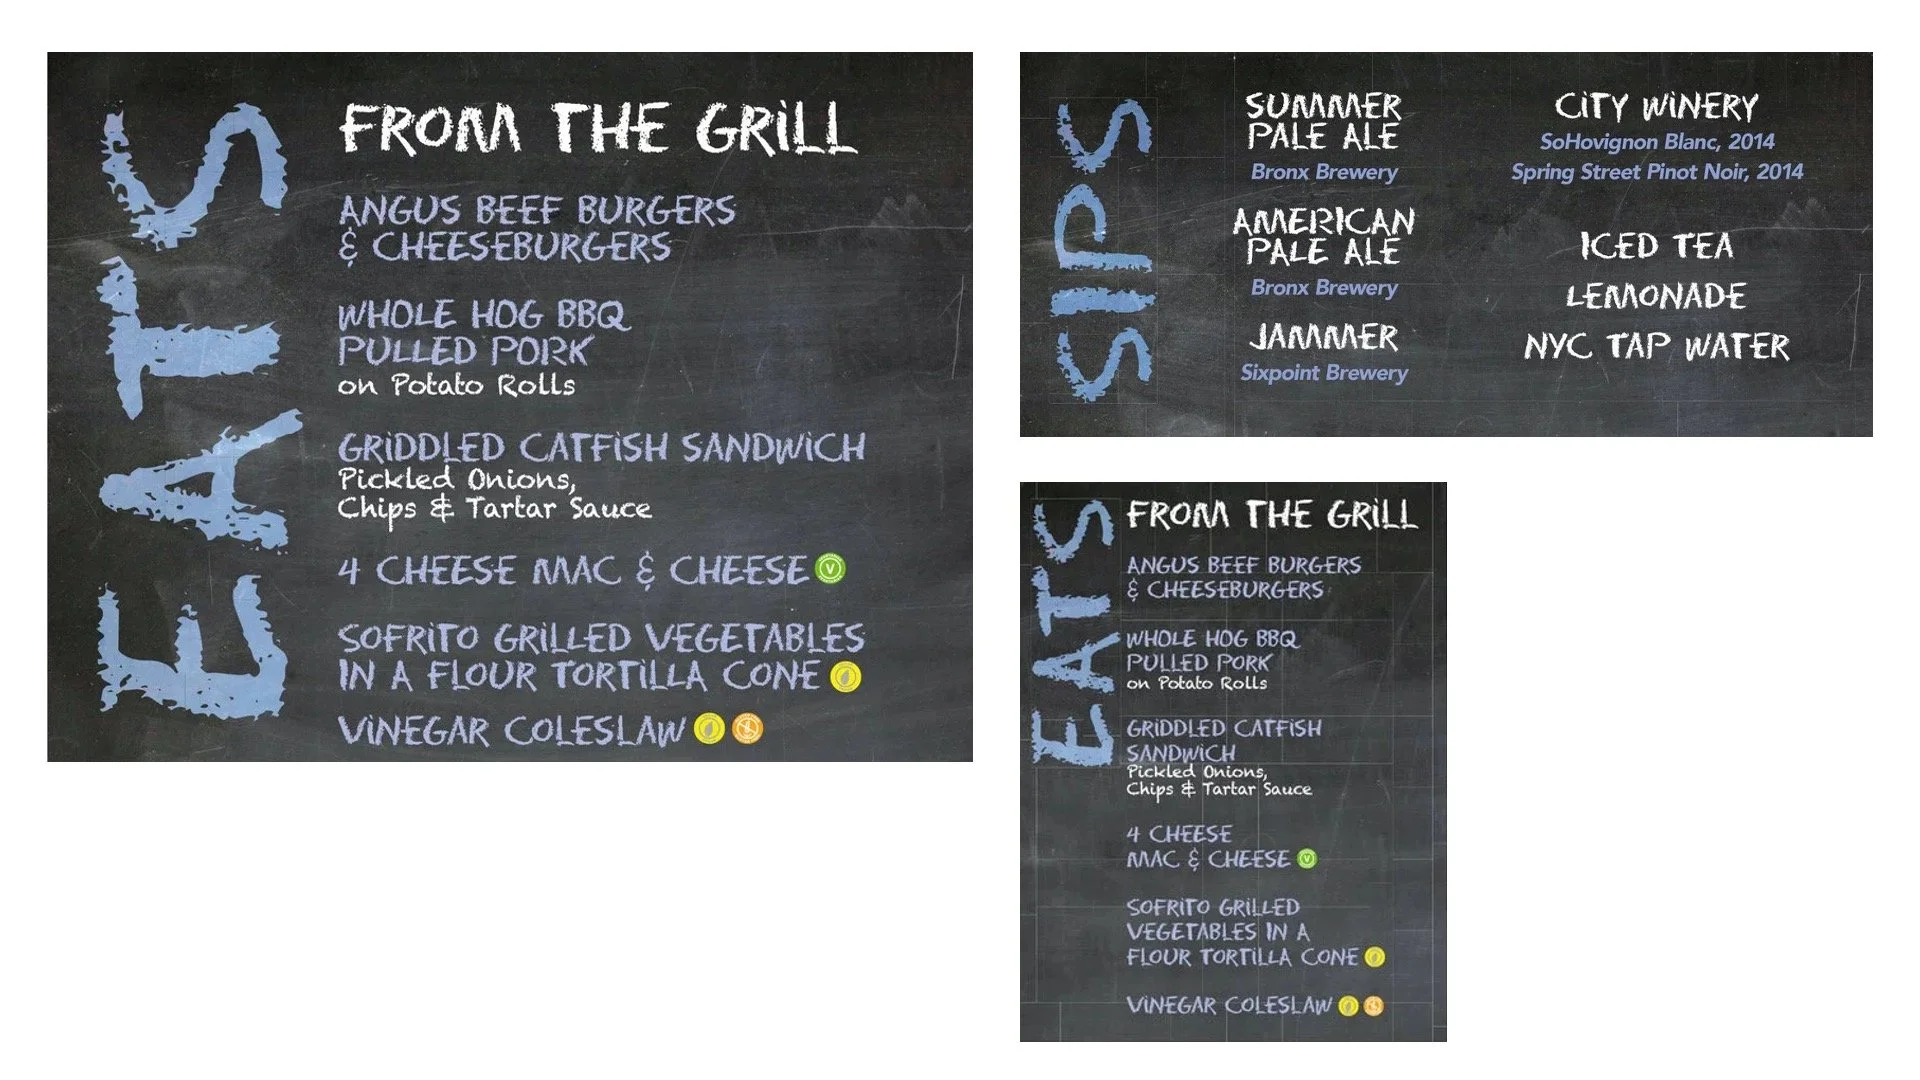 EATS
FROM THE GRILL
ANGUS BEEF BURGERS
& CHEESEBURGERS
WHOLE HOG BBQ
PULLED PORK
on Potato Rolls
GRIDDLED CATFISH SANDWICH
Pickled Onions,
Chips & Tartar Sauce
4 CHEESE MAC & CHEESE V
SOFRITO GRILLED VEGETABLES
IN A FLOUR TORTILLA CONE
VINEGAR COLESLAW
SIPS
SUMMER
PALE ALE
Bronx Brewery
AMERICAN
PALE ALE
Bronx Brewery
JAMMER
Sixpoint Brewery
CITY WINERY
SoHovignon Blanc, 2014
Spring Street Pinot Noir, 2014
ICED TEA
LEMONADE
NYC TAP WATER
EATS
FROM THE GRILL
ANGUS BEEF BURGERS
& CHEESEBURGERS
WHOLE HOG BBQ
PULLED PORK
on Potato Rolls
GRIDDLED CATFISH
SANDWICH
Pickled Onions,
Chips & Tartar Sauce
4 CHEESE
MAC & CHEESE V
SOFRITO GRILLED
VEGETABLES IN A
FLOUR TORTILLA CONE
VINEGAR COLESLAW